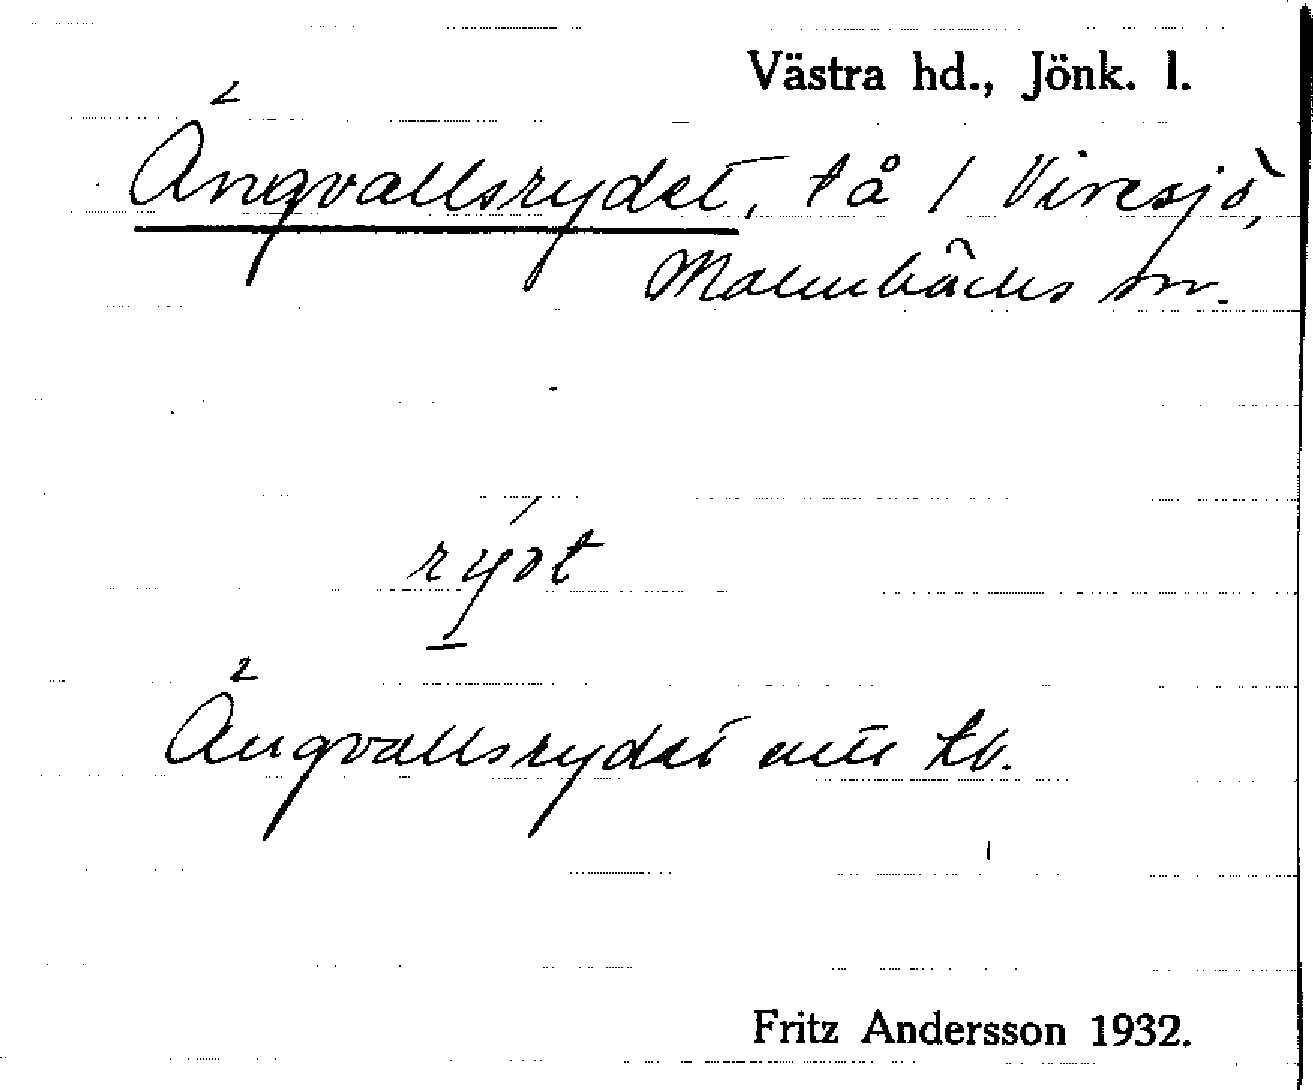 Västra hd., Jönk. l.
Ängvallsrydet, tå / Viresjö,
Malmbäcks sn.
rý̱ət
Ängvallsrydet
Fritz Andersson 1932.